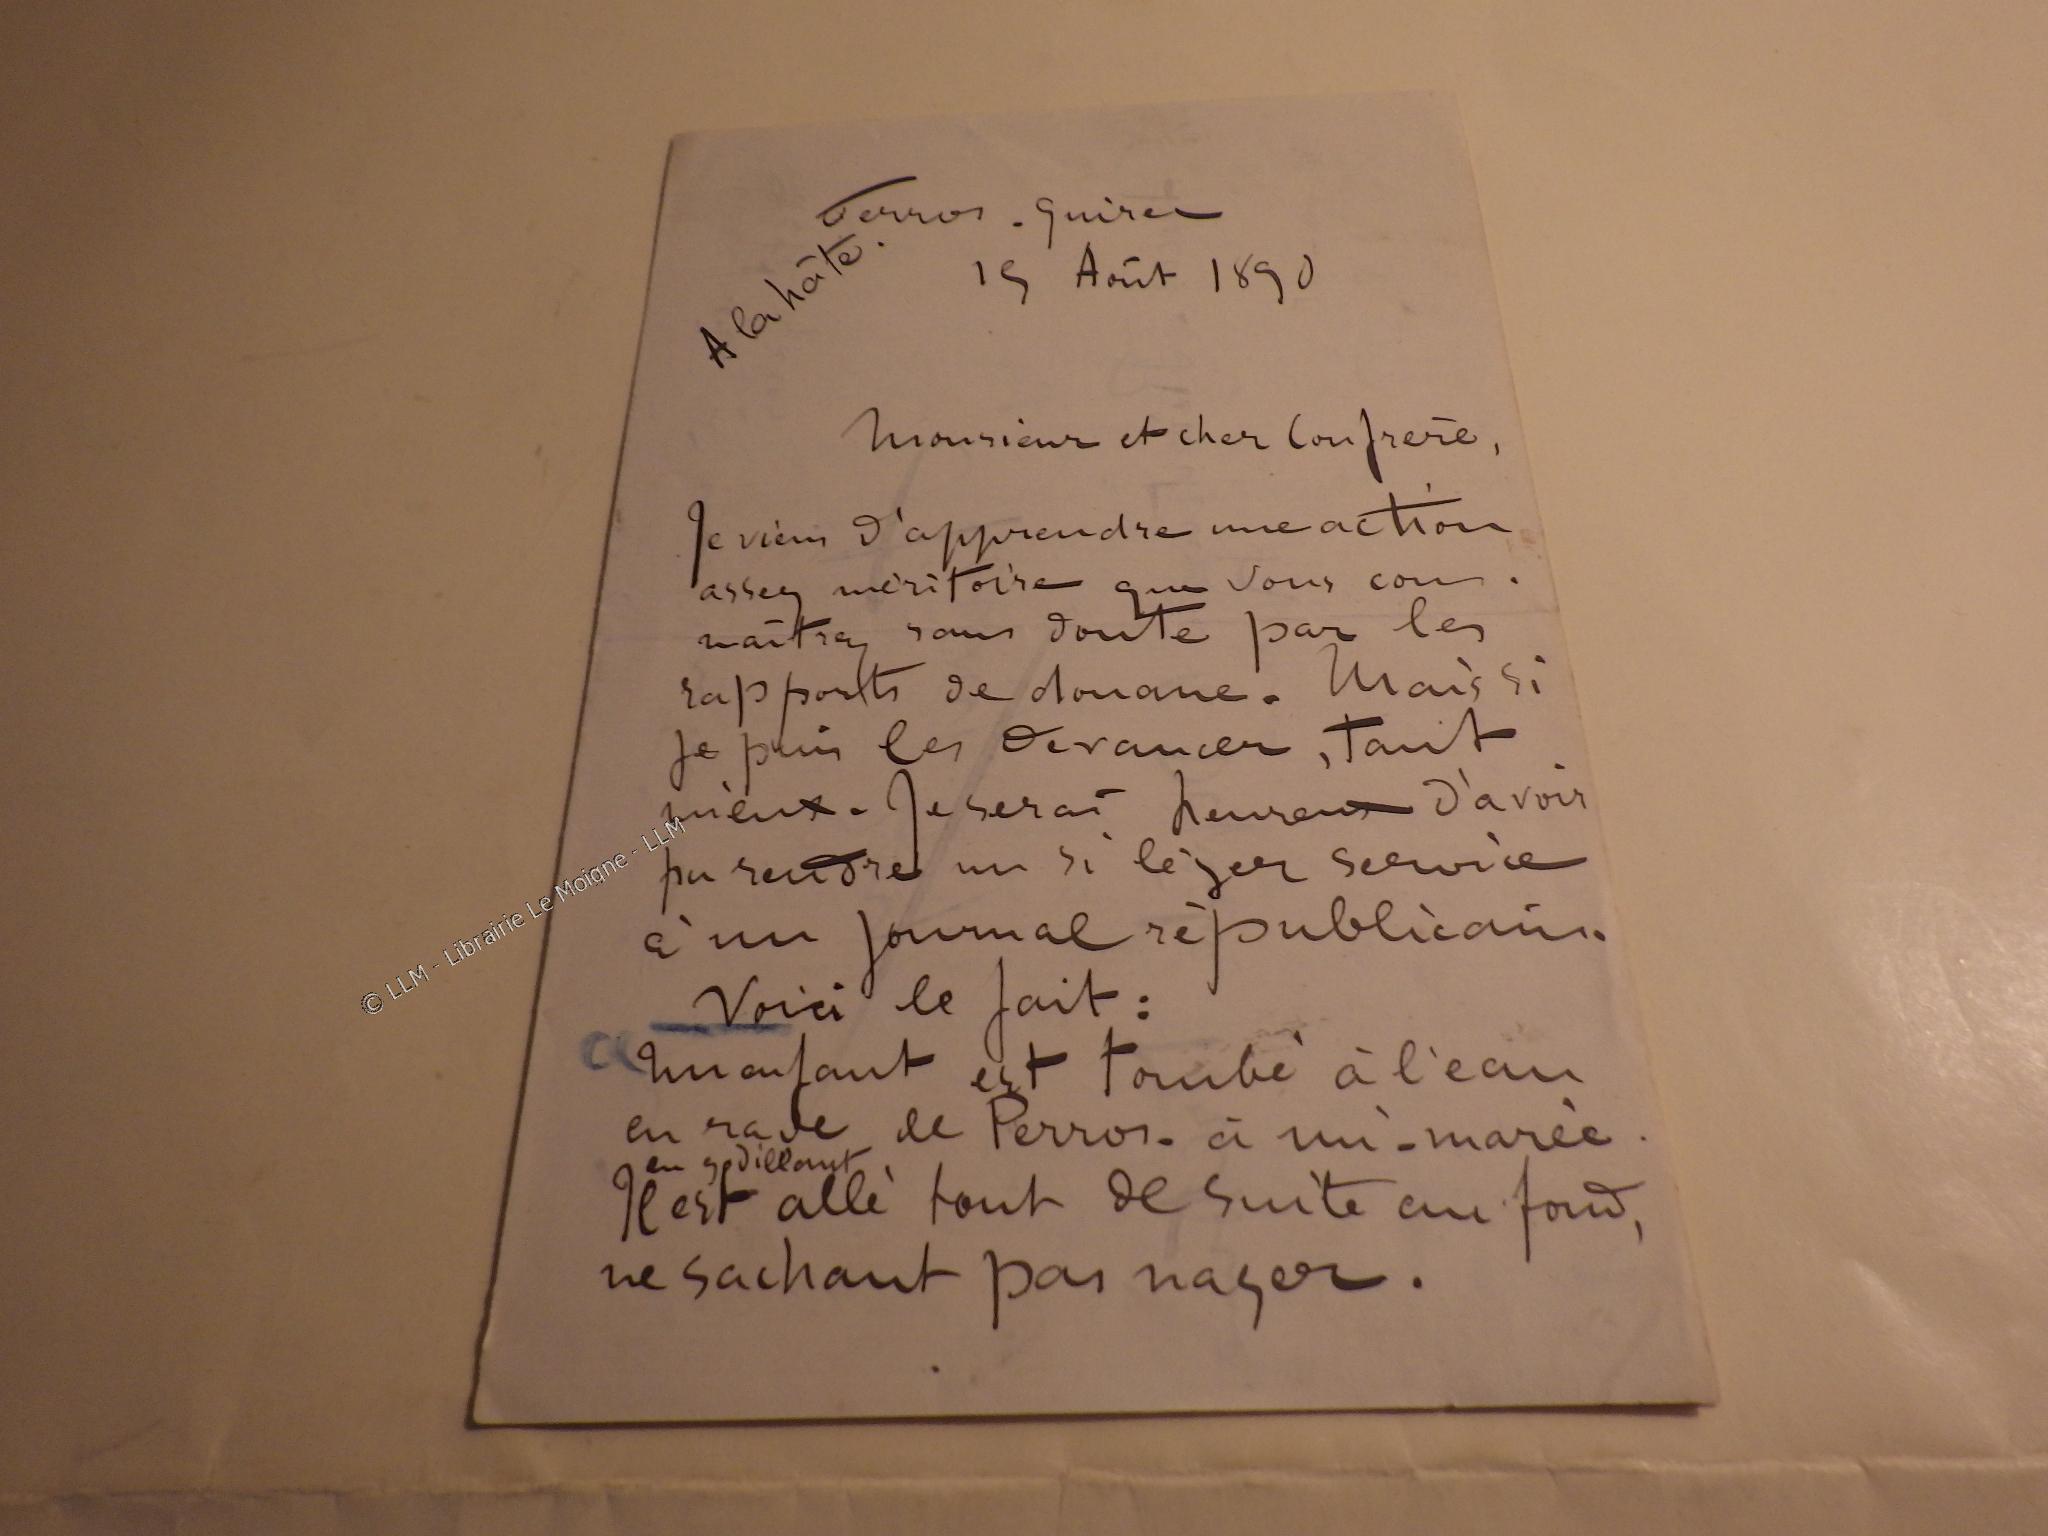 Perros-Guirec
A la hâte.
19 Août 1890
Monsieur et cher Confrère,
Je viens d'apprendre une action
assez méritoire que vous con-
naîtrez sans doute par les
rapports de douane. Mais si
je puis les devancer, tant
mieux. Je serai heureux d'avoir
pu rendre un si léger service
à un journal républicain.
Voici le fait :
Un enfant est tombé à l'eau
en rade de Perros - à mi-marée.
en godillant
Il est allé tout de suite au fond,
ne sachant pas nager.
© LLM - Librairie Le Moigne - LLM